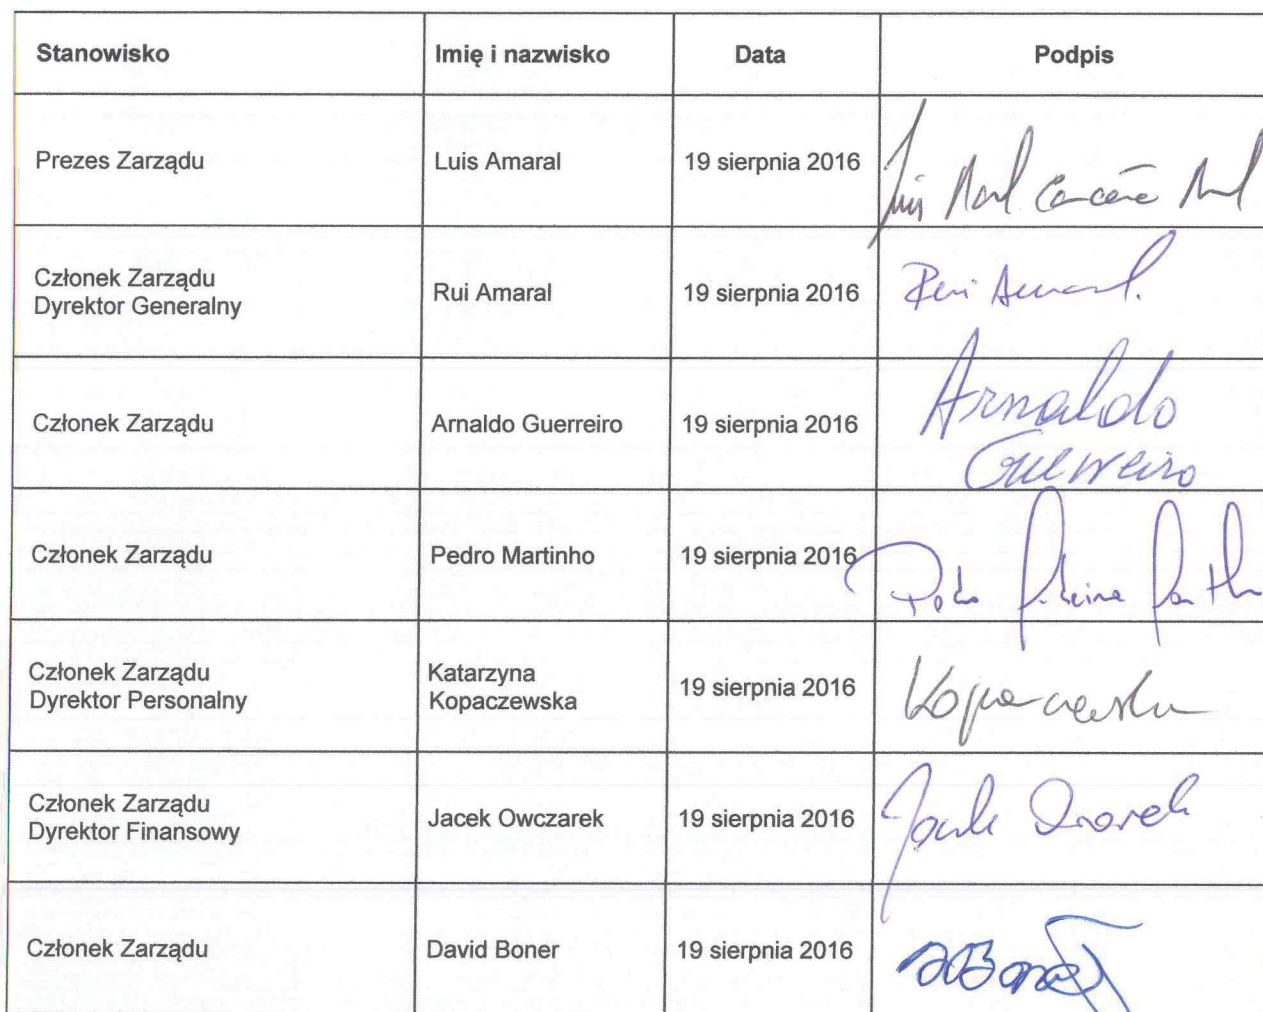 Stanowisko Imię i nazwisko Data Podpis
Prezes Zarządu Luis Amaral 19 sierpnia 2016
Członek Zarządu
Dyrektor Generalny Rui Amaral 19 sierpnia 2016 Rui Amaral.
Członek Zarządu Arnaldo Guerreiro 19 sierpnia 2016 Arnaldo
Guerreiro
Członek Zarządu Pedro Martinho 19 sierpnia 2016
Członek Zarządu
Dyrektor Personalny Katarzyna
Kopaczewska 19 sierpnia 2016 Kopaczewska
Członek Zarządu
Dyrektor Finansowy Jacek Owczarek 19 sierpnia 2016 Jacek
Członek Zarządu David Boner 19 sierpnia 2016